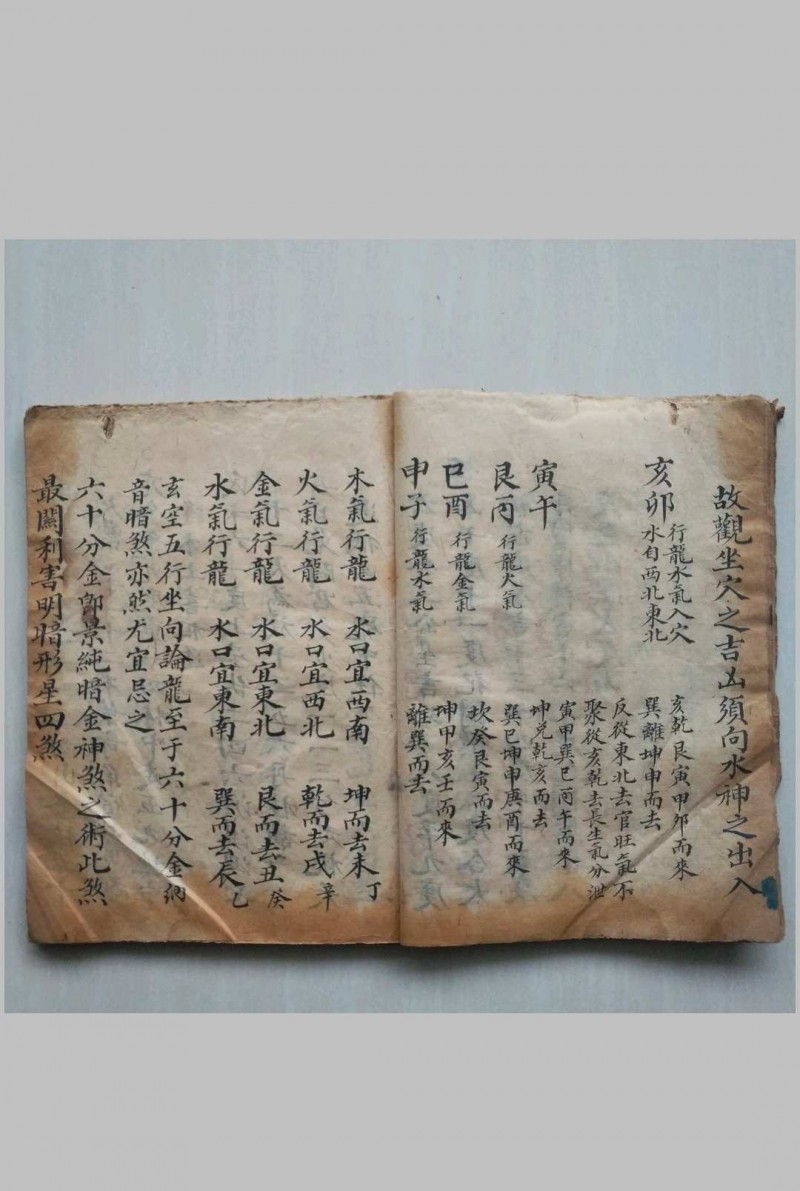 故觀坐穴之吉凶須向水神之出入
亥卯
行龍水氣入穴
水自西北東北
亥乾艮寅甲卯而來
巽離坤申而去
反從東北去官旺氣不
聚從亥乾去長生氣分泄
寅午
寅甲巽巳丙午而來
坤兑乾亥而去
艮丙
行龍火氣
巽巳坤申庚酉而來
坎癸艮寅而去
巳酉
行龍金氣
坤甲亥壬而來
離巽而去
申子
行龍水氣
木氣行龍 水口宜西南 坤而去未丁
火氣行龍 水口宜西北 乾而去戌辛
金氣行龍 水口宜東北 艮而去丑癸
水氣行龍 水口宜東南 巽而去辰乙
玄空五行坐向論龍至于六十分金納
音暗煞亦然尤宜忌之
六十分金卽景純暗金神煞之術此煞
最關利害明暗形星四煞